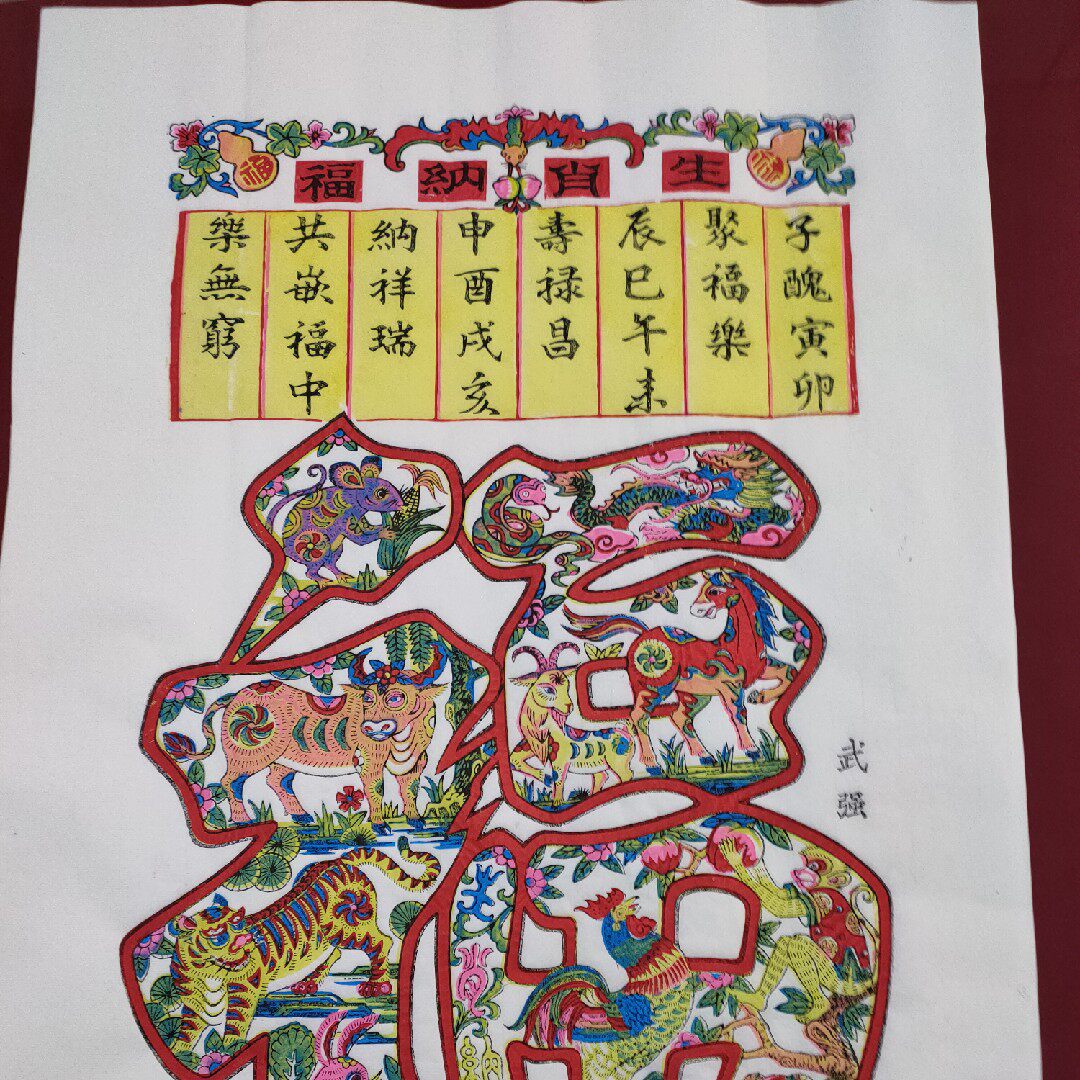 生肖納福
福
福
子醜寅卯
聚福樂
辰巳午未
壽禄昌
申酉戌亥
納祥瑞
共嵌福中
樂無窮
福
武强